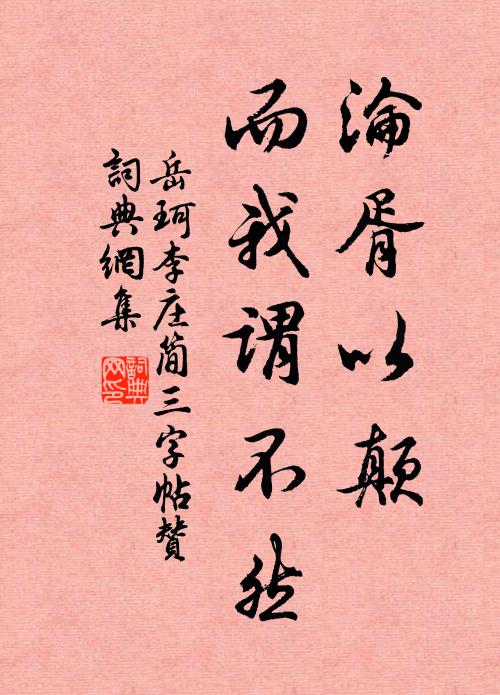 淪胥以顛
而我謂不然
岳珂李庄简三字帖赞
詞典網集
詞典
网印